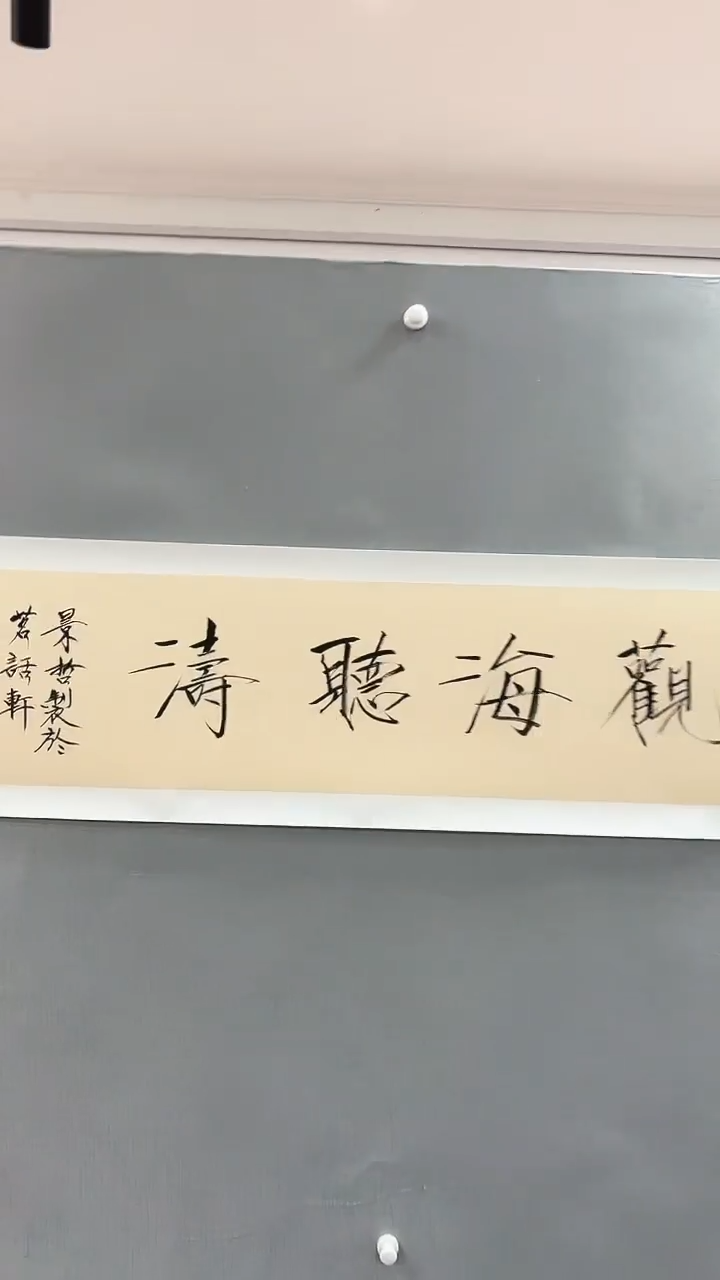 觀海聽濤
景哲製於
茗話軒